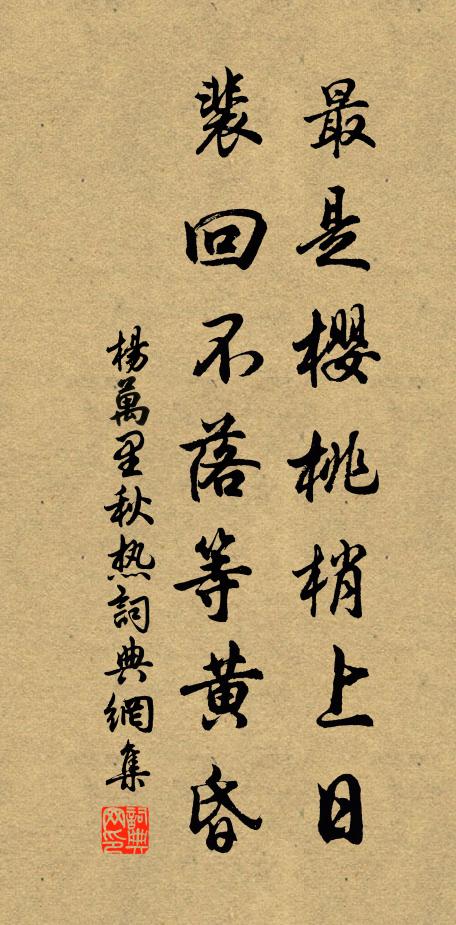 最是櫻桃梢上日
裴回不落等黄昏
楊萬里秋热詞典網集
詞典网印